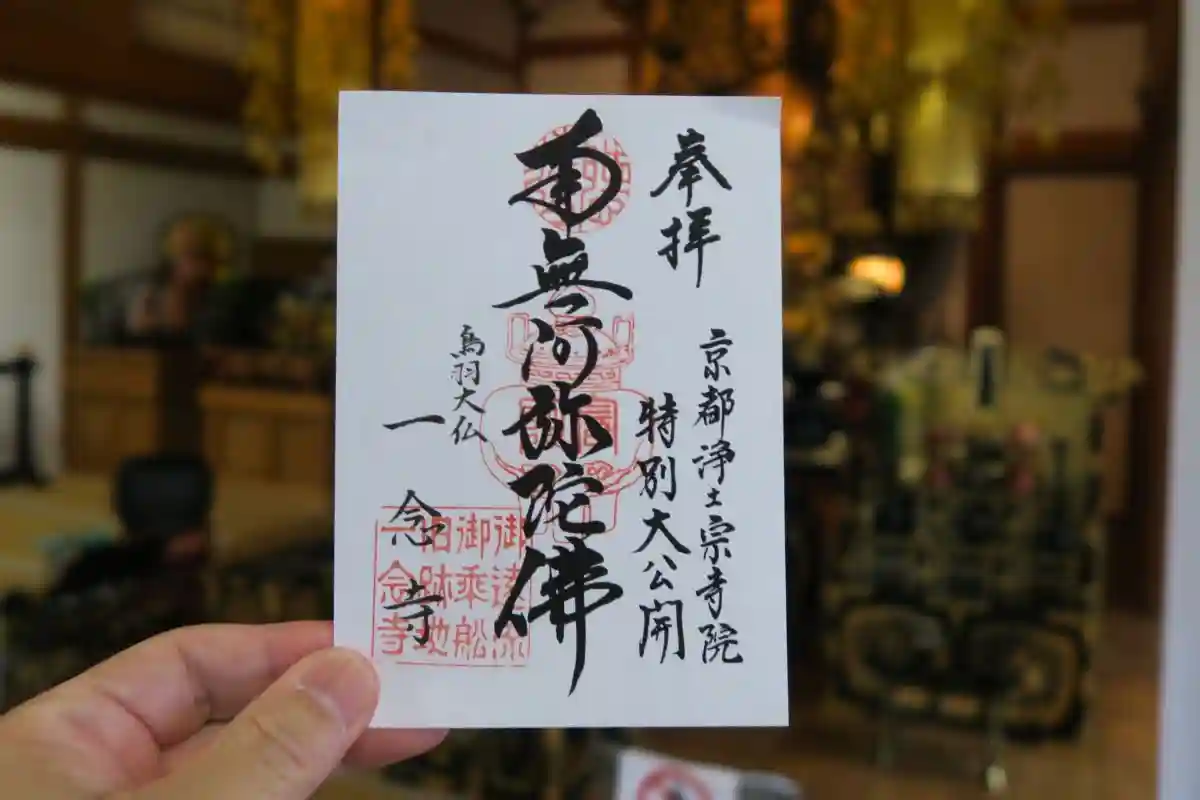 奉拝
京都浄土宗寺院
特別大公開
南無阿弥陀佛
鳥羽大仏
一念寺
御遠流
御乗船
旧跡地
一念寺